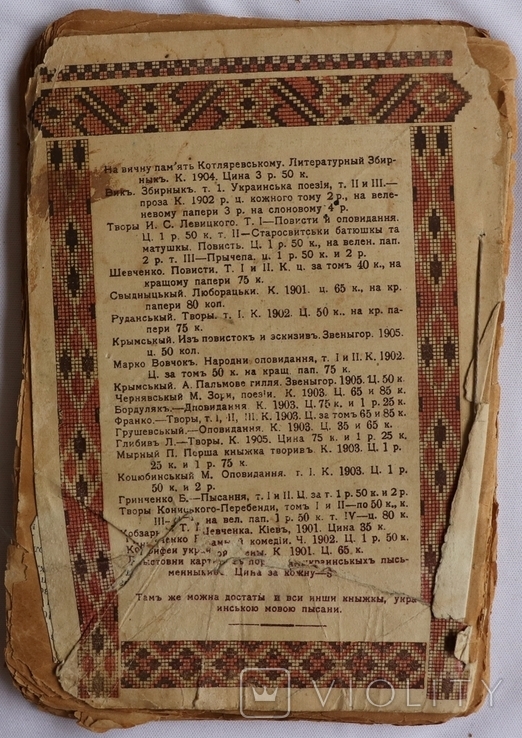 На вичну пам'ять Котляревському. Литературный Збир-
ныкъ. К. 1904. Цина 3 р. 50 к.
Викъ. Збирныкъ. т. 1. Украинська поезія, т. II и III.—
проза К. 1902 р. ц. кожного тому 2 р., на веле-
невому папери 3 р. на слоновому 4 р.
Творы И. С. Левицкого. Т. I—Повисти и оповидання.
Ц. 1 р. 50 к. т. II—Старосвитськи батюшкы та
матушкы. Повисть. Ц. 1 р. 50 к., на велен. пап.
2 р. т. III—Прычепа, ц. 1 р. 50 к. и 2 р.
Шевченко. Повисти. Т. I и II. К. ц. за томъ 40 к., на
кращому папери 75 к.
Свыдныцькый. Люборацьки. К. 1901. ц. 65 к., на кр.
папери 80 коп.
Руданськый. Творы. т. I. К. 1902. Ц. 50 к.. на кр. па-
пери 75 к.
Крымськый. Изъ повистокъ и эскизив. Звеныгор. 1905.
ц. 50 коп.
Марко Вовчокъ. Народни оповидання, т. I и II. К. 1902.
Ц. за томъ 50 к. на кращ. пап. 75 к.
Крымськый. А. Пальмове гилля. Звеныгор. 1905. Ц. 50 к
Чернявськый М. Зори, поезіи. К. 1903. Ц. 65 и 85 к.
Бордулякъ.—Оповидання. К. 1903. Ц. 75 к. и 1 р. 25 к.
Франко.—Творы, т. I, II, III, К. 1903. Ц. за томъ 65 и 85 к.
Грушевськый.—Оповидання. К. 1903. Ц. 35 и 65 к.
Глибивъ Л.—Творы. К. 1905. Цина 75 к. и 1 р. 25 к,
Мырный П. Перша книжка творивъ. К. 1903. Ц. 1 р.
25 к. и 1 р. 75 к.
Коцюбинськый М. Оповидання. т. I. К. 1903. Ц. 1 р.
50 к. и 2 р.
Гринченко, Б.—Пысання, т. I и II. Ц. за т. 1 р. 50 к. и 2 р.
Творы Кониського-Перебенди, том I и II—по 50 к., к.
III— на вел. пап. 1 р. 50 к. т. IV—ц. 80 к.
Кобзарь Т. Шевченка. Кіевъ, 1901. Цина 35 к.
и комедіи. Ч. 1902. Ц. 1 р. 50 к.
К. 1901. Ц. 65 к.
украинськых пысь-
менныкивъ. Цина за кожну—5
Тамъ же можна достаты и вси инши кныжкы, укра
инською мовою пысани.
VIOLITY